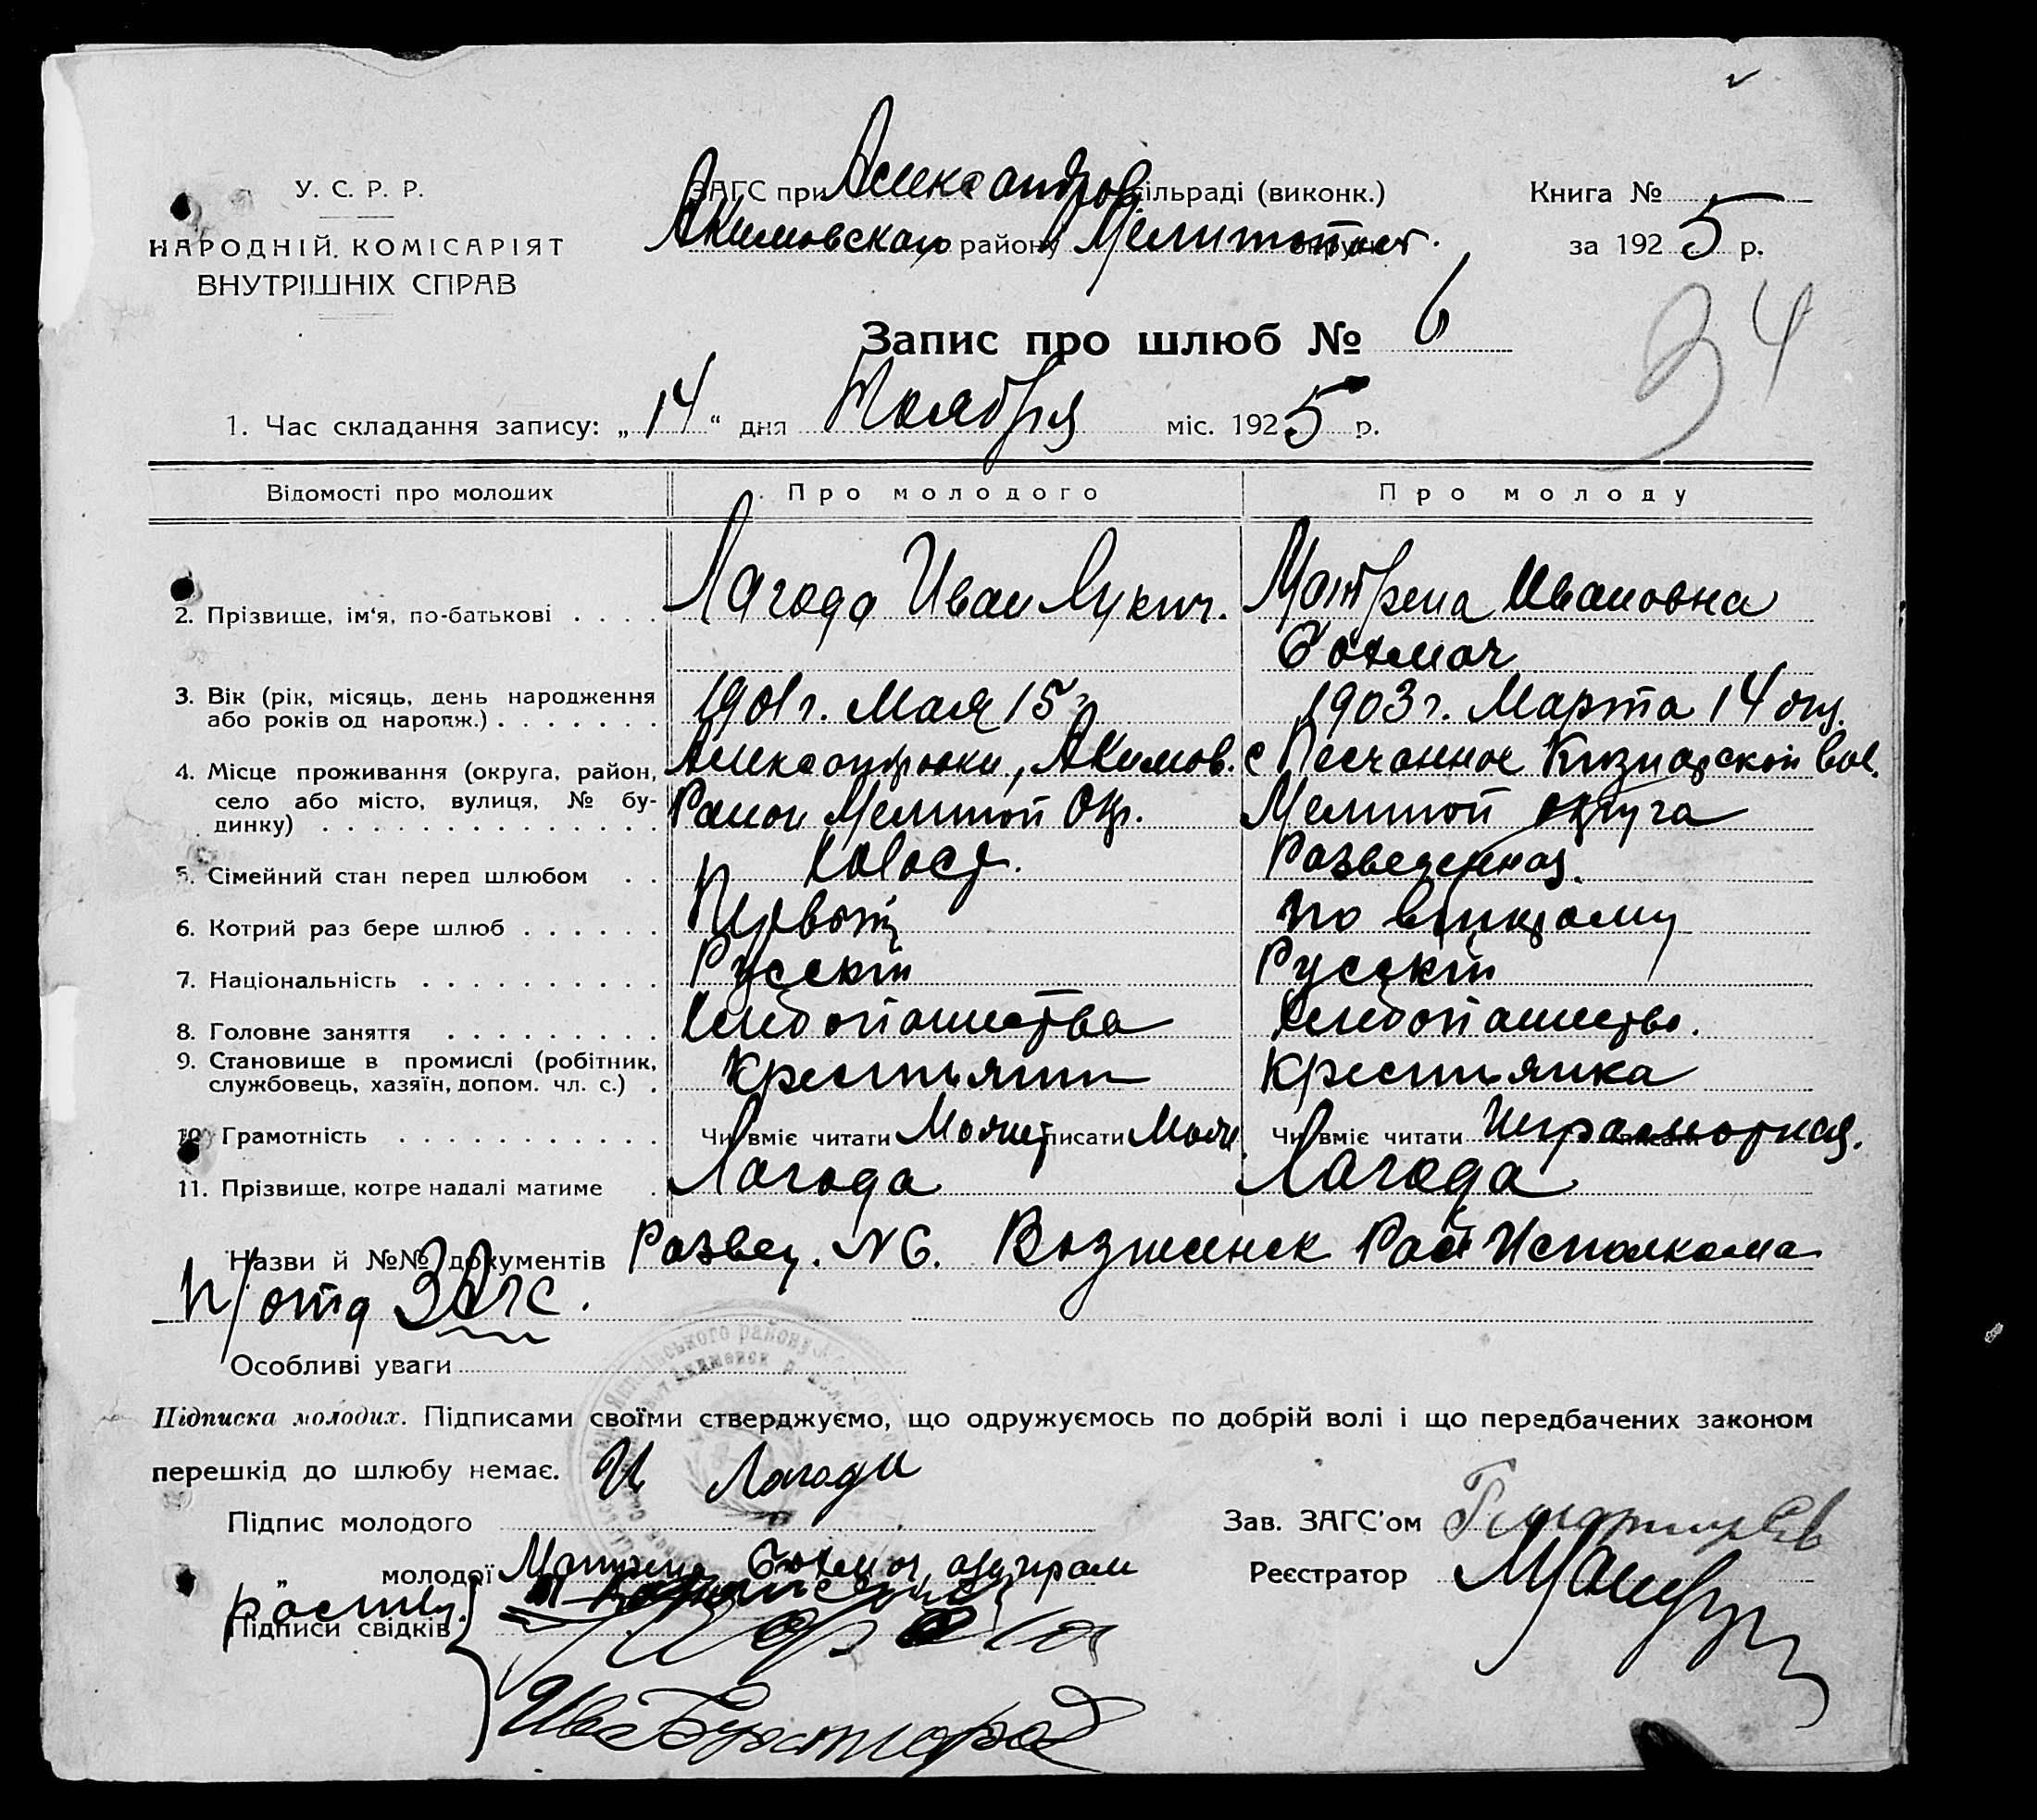 У. С. Р. Р.
НАРОДНІЙ КОМІСАРІЯТ
ВНУТРІШНІХ СПРАВ
ЗАГС при Александров сільраді (виконк.)
Акимовскаго району Мелитопол. округи
Книга №
за 1925 р.
Запис про шлюб № 6
34
1. Час складання запису: „14“ дня Ноября міс. 1925 р.
Відомості про молодих
Про молодого
Про молоду
2. Прізвище, ім‘я, по-батькові . . . .
Лагода Иван Лукич.
Матрена Ивановна
3. Вік (рік, місяць, день народження
або років од народж.) . . . . . . .
1901 г. Мая 15
1903 г. Марта 14
4. Місце проживання (округа, район,
село або місто, вулиця, № бу-
динку) . . . . . . . . . . . . . .
Александровки, Акимов.
Район Мелитоп Окр.
с Песчанное Кизиарской вол.
Мелитоп округа
5. Сімейний стан перед шлюбом . .
Холост.
Разведенная.
6. Котрий раз бере шлюб . . . . . .
Первый
по второму
7. Національність . . . . . . . . . .
Русский
Русский
8. Головне заняття . . . . . . . . .
Хлебопашества
Хлебопашество.
9. Становище в промислі (робітник,
службовець, хазяїн, допом. чл. с.) .
Крестьянин
Крестьянка
10. Грамотність . . . . . . . . . . . .
Чи вміє читати Может писати Може
Чи вміє читати Неграмотная. писати
11. Прізвище, котре надалі матиме .
Лагода
Лагода
Назви й №№ документів Развед. № 6. Рай Исполкома
п/отд Загс.
Особливі уваги
Підписка молодих. Підписами своїми стверджуємо, що одружуємось по добрій волі і що передбачених законом
перешкід до шлюбу немає.
И Лагода
Підпис молодого
Зав. ЗАГС’ом
„ молодої Матрена
Реєстратор
Підписи свідків